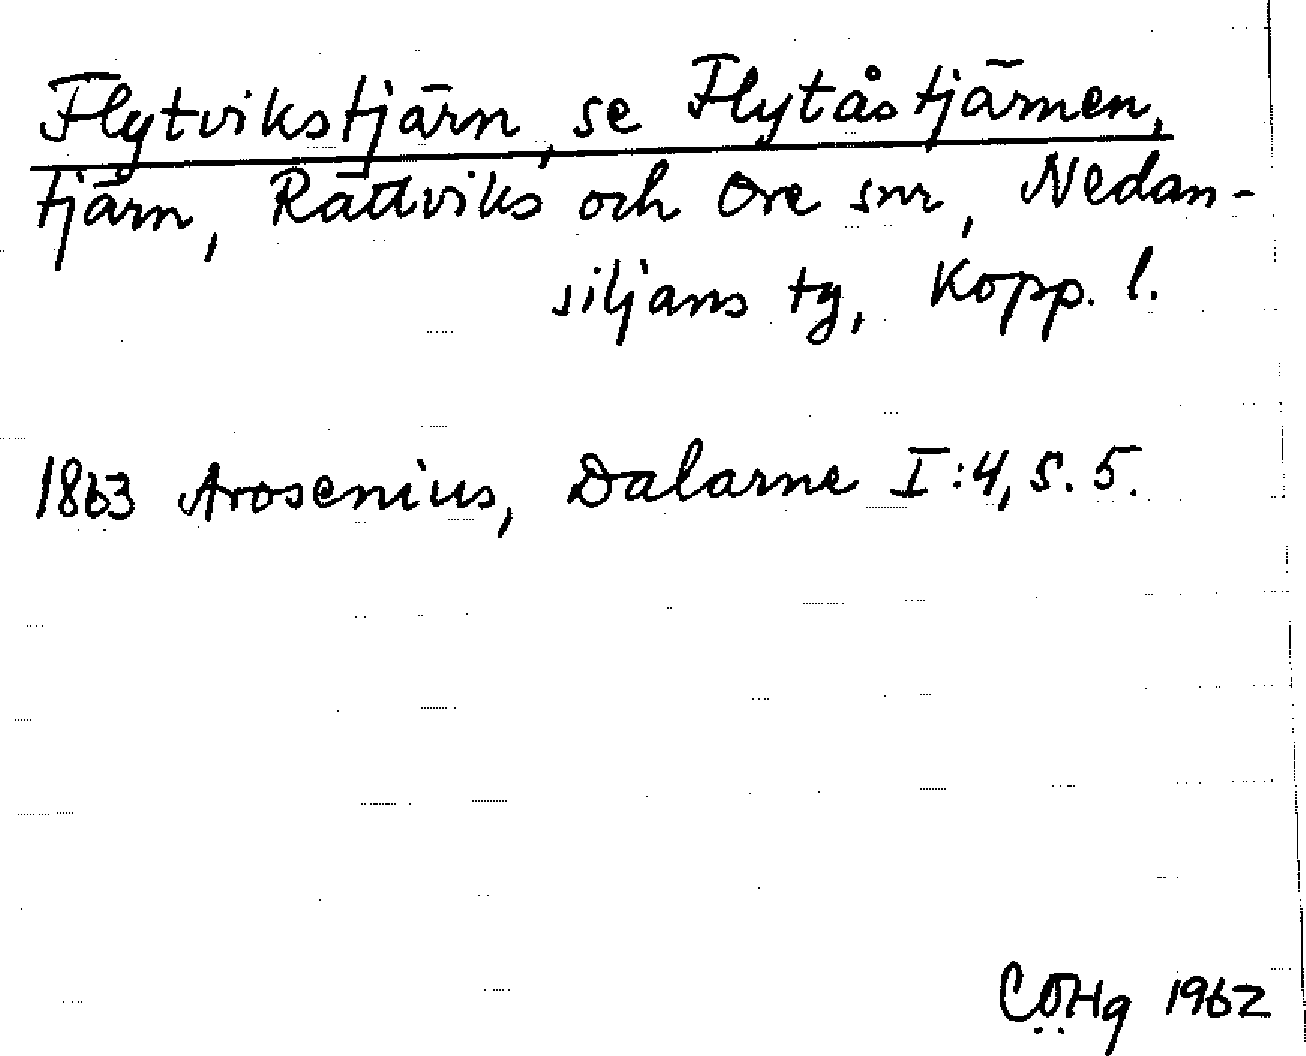 Flytvikstjärn, se Flytåstjärnen,
tjärn, Rättviks och Ore snr, Nedan-
siljans tg, Kopp. l.
1863 Arosenius, Dalarne I:4, s. 5.
CÖHg 1962